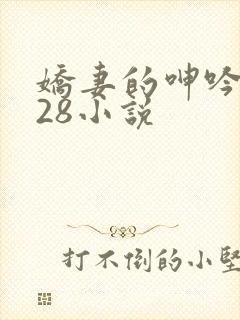 嬌妻的呻吟
28小説
打不倒的小堅